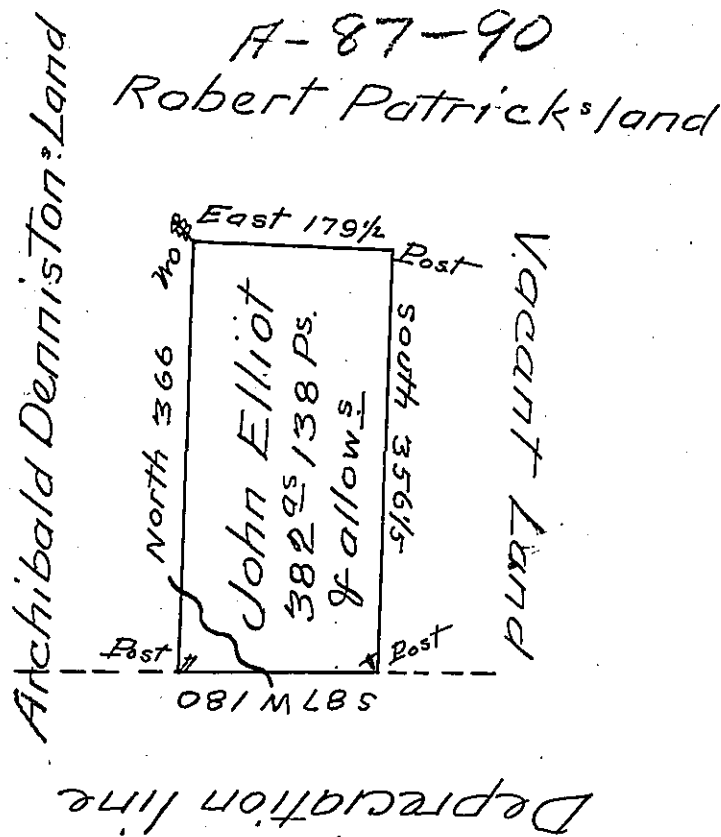 A-87-90
Robert Patrick's land
Archibald Denniston's Land
East 179½
WO
Post
North 366
John Elliot
382 as 138 Ps.
& allows
South 356½
Vacant Land
Post
Post
S87W 180
Depreciation line